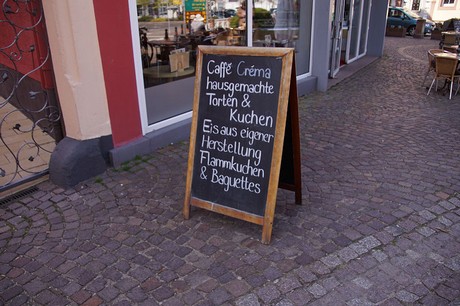 Caffé Créma
hausgemachte
Torten &
Kuchen
Eis aus eigener
Herstellung
Flammkuchen
& Baguettes